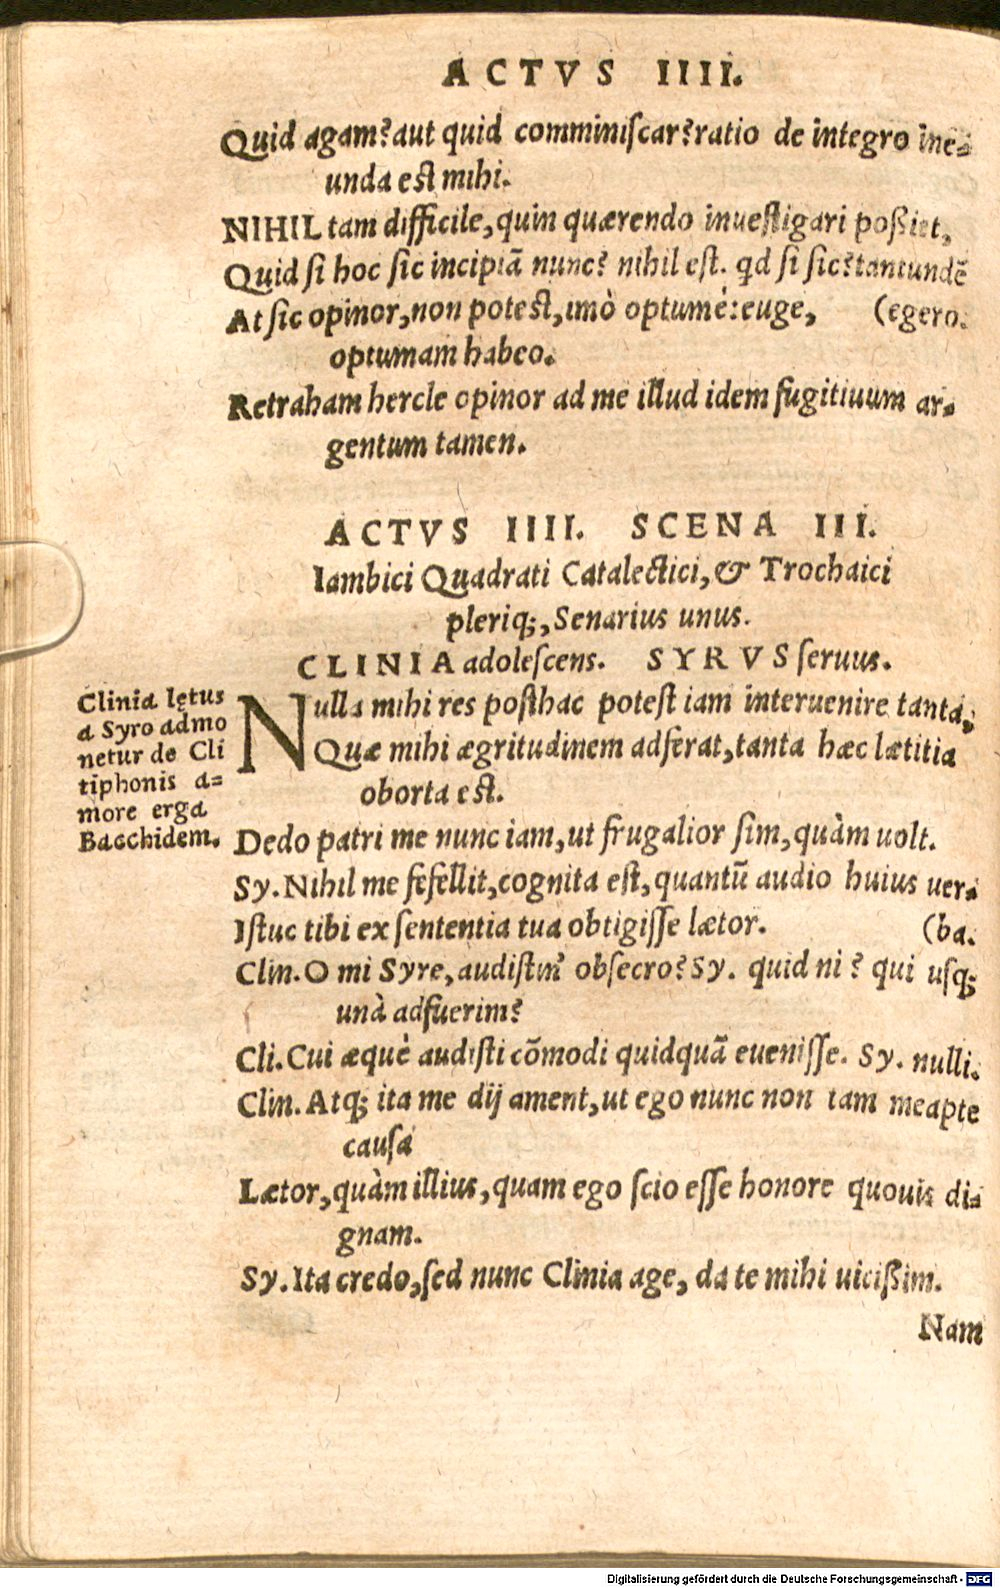 ACTVS IIII.
Quid agam? aut quid comminiſcar? ratio de integro ine-
unda est mihi.
NIHIL tam difficile, quin quærendo inuestigari poßiet,
Quid ſi hoc ſic incipiã nunc? nihil eſt. qd ſi ſic? tantundẽ
At ſic opinor, non potest, imò optumè: euge, (egero.
optumam habeo.
Retraham hercle opinor ad me illud idem fugitiuum ar-
gentum tamen.
ACTVS IIII. SCENA III.
Iambici Quadrati Catalectici, & Trochaici
pleriq;, Senarius unus.
CLINIA adoleſcens. SYRVS ſeruus.
Clinia lętus
a Syro admo
netur de Cli
tiphonis a=
more erga
Bacchidem.
Nulla mihi res posthac potest iam interuenire tanta,
Quæ mihi ægritudinem adferat, tanta hæc lætitia
oborta est.
Dedo patri me nunc iam, ut frugalior ſim, quàm uolt.
Sy. Nihil me fefellit, cognita eſt, quantũ audio huius uer-
Iſtuc tibi ex ſententia tua obtigiſſe lætor. (ba.
Clin. O mi Syre, audiſtin' obſecro? Sy. quid ni? qui uſq;
unà adfuerim?
Cli. Cui æquè audiſti cõmodi quidquã eueniſſe. Sy. nulli.
Clin. Atq; ita me dij ament, ut ego nunc non tam meapte
cauſa
Lætor, quàm illius, quam ego ſcio eſſe honore quouis di-
gnam.
Sy. Ita credo, ſed nunc Clinia age, da te mihi uicißim.
Nam
Digitalisierung gefördert durch die Deutsche Forschungsgemeinschaft - DFG